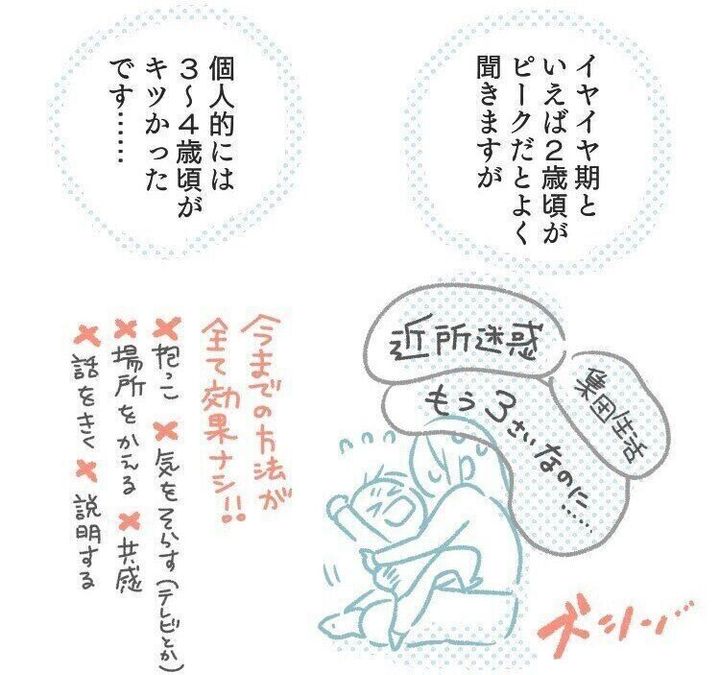 イヤイヤ期と
いえば２歳頃が
ピークだとよく
聞きますが
個人的には
３〜４歳頃が
キツかった
です……
近所迷惑
集団生活
もう3さいなのに……
ズーン
今までの方法が
全て効果ナシ!!
×抱っこ ×気をそらす(テレビとか)
×場所をかえる ×共感
×話をきく ×説明する